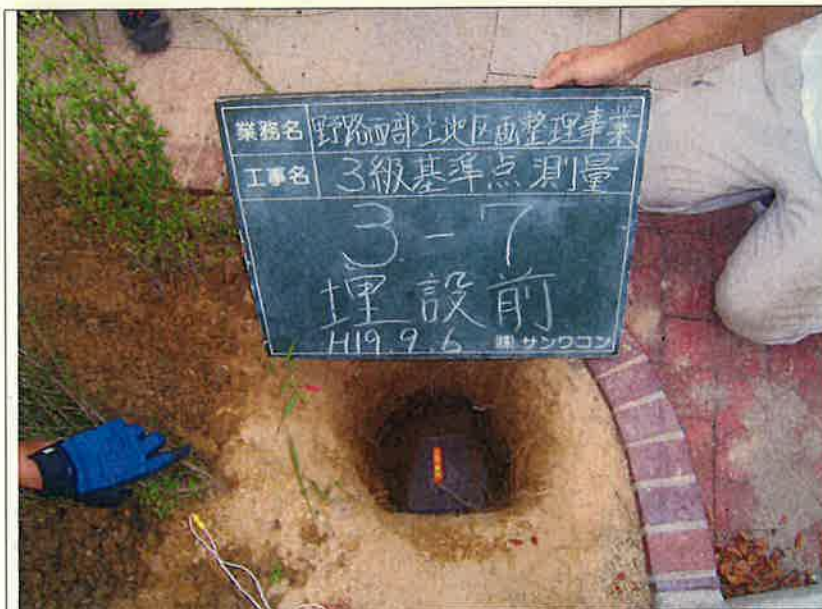 業務名 野路西部土地区画整理事業
工事名 3級基準点測量
3-7
埋設前
H19.9.6 ㈱サンワコン